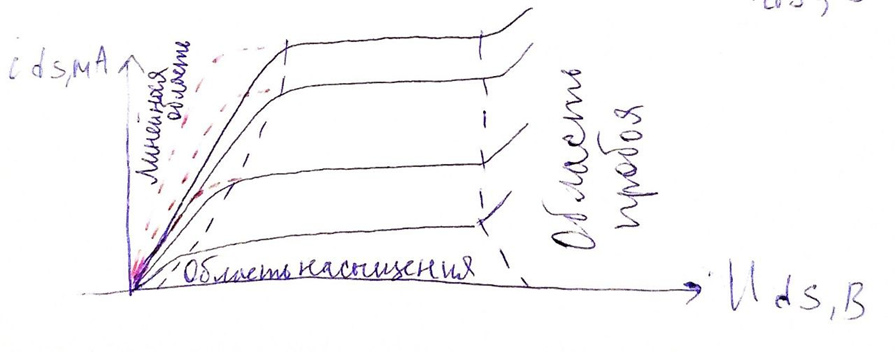 i ds, мА
Линейная
область
Область насыщения
Область
пробоя
U ds, В